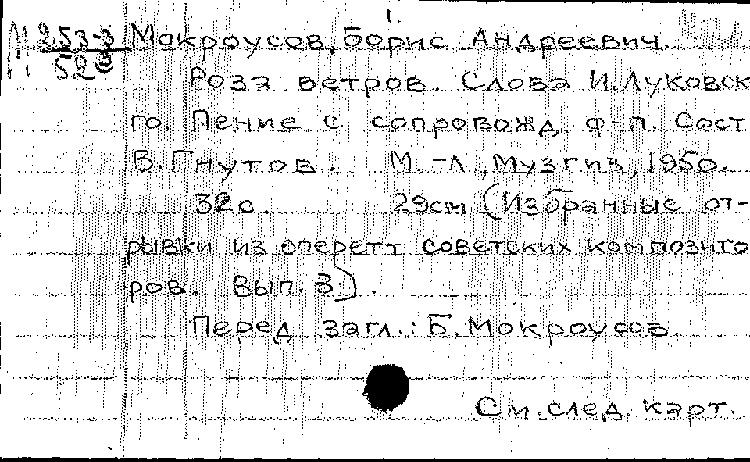 1.
М 253-3 Мокроусов, Борис Андреевич.
52 Роза ветров. Слова И. Луковск
го. Пение с сопровожд. ф-п. Сост
В. Гнутов. М.-Л., Музгиз, 1950.
32с. 29см (Избранные от-
рывки из оперетт советских композито
ров. Вып. 3).
Перед загл.: Б. Мокроусов.
См. след. карт.